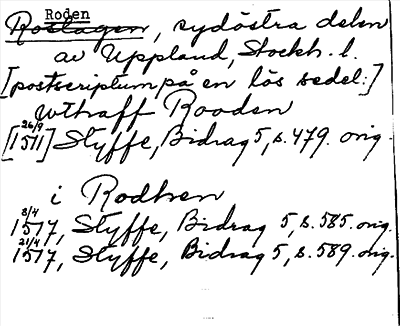 Roden
Roslagen, sydöstra delen
av Uppland, Stockh. l.
[postscriptum på en lös sedel:]
wthaff Rooden
26/9
[1511] Styffe, Bidrag 5, s. 479. orig.
i Rodhen
8/4
1517, Styffe, Bidrag 5, s. 585. orig.
21/4
1517, Styffe, Bidrag 5, s. 589. orig.